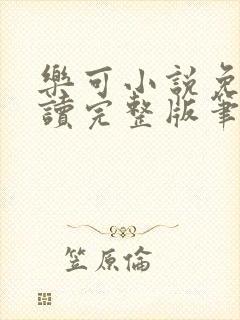 樂可小説免
讀完整版筆
笠原倫